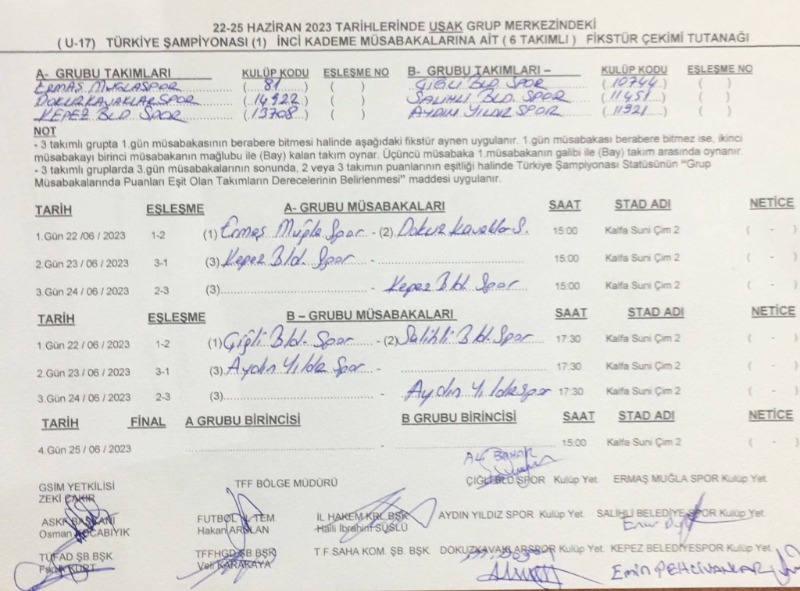 22-25 HAZİRAN 2023 TARİHLERİNDE UŞAK GRUP MERKEZİNDEKİ
( U-17) TÜRKİYE ŞAMPİYONASI (1) İNCİ KADEME MÜSABAKALARINA AİT ( 6 TAKIMLI ) FİKSTÜR ÇEKİMİ TUTANAĞI
A- GRUBU TAKIMLARI KULÜP KODU EŞLEŞME NO B- GRUBU TAKIMLARI – KULÜP KODU EŞLEŞME NO
ERMAŞ MUĞLASPOR ( 81 ) ( ) ÇİĞLİ BLD SPOR ( 10744 ) ( )
DOKUZKAVAKLARSPOR ( 14922 ) ( ) SALİHLİ BLD. SPOR ( 11451 ) ( )
KEPEZ BLD SPOR ( 13708 ) ( ) AYDIN YILDIZ SPOR ( 11921 ) ( )
NOT
- 3 takımlı grupta 1.gün müsabakasının berabere bitmesi halinde aşağıdaki fikstür aynen uygulanır. 1.gün müsabakası berabere bitmez ise, ikinci
müsabakayı birinci müsabakanın mağlubu ile (Bay) kalan takım oynar. Üçüncü müsabaka 1.müsabakanın galibi ile (Bay) takım arasında oynanır.
- 3 takımlı gruplarda 3.gün müsabakalarının sonunda, 2 veya 3 takımın puanlarının eşitliği halinde Türkiye Şampiyonası Statüsünün “Grup
Müsabakalarında Puanları Eşit Olan Takımların Derecelerinin Belirlenmesi” maddesi uygulanır.
TARİH EŞLEŞME A- GRUBU MÜSABAKALARI SAAT STAD ADI NETİCE
1.Gün 22 /06 / 2023 1-2 (1) Ermaş Muğla Spor - (2) Dokuz Kavaklar S. 15:00 Kalfa Suni Çim 2 ( - )
2.Gün 23 / 06 / 2023 3-1 (3) Kepez Bld. Spor - 15:00 Kalfa Suni Çim 2 ( - )
3.Gün 24 / 06 / 2023 2-3 (3) - Kepez Bld. Spor 15:00 Kalfa Suni Çim 2 ( - )
TARİH EŞLEŞME B – GRUBU MÜSABAKALARI SAAT STAD ADI NETİCE
1.Gün 22 / 06 / 2023 1-2 (1) Çiğli Bld. Spor - (2) Salihli Bld. Spor 17:30 Kalfa Suni Çim 2 ( - )
2.Gün 23 / 06 / 2023 3-1 (3) Aydın Yıldız Spor - 17:30 Kalfa Suni Çim 2 ( - )
3.Gün 24 / 06 / 2023 2-3 (3) - Aydın Yıldızspor 17:30 Kalfa Suni Çim 2 ( - )
TARİH FİNAL A GRUBU BİRİNCİSİ B GRUBU BİRİNCİSİ SAAT STAD ADI NETİCE
4.Gün 25 / 06 / 2023 - 15:00 Kalfa Suni Çim 2 ( - )
GSİM YETKİLİSİ TFF BÖLGE MÜDÜRÜ ÇİĞLİ BLD SPOR Kulüp Yet. ERMAŞ MUĞLA SPOR Kulüp Yet.
ZEKİ ÇAKIR
ASKF BAŞKANI FUTBOL İL TEM. İL HAKEM KRL.BŞK AYDIN YILDIZ SPOR Kulüp Yet. SALİHLİ BELEDİYE SPOR Kulüp Yet.
Osman KOCABIYIK Hakan ARSLAN Halil İbrahim SÜSLÜ
TÜFAD ŞB BŞK TFFHGD ŞB BŞK T.F. SAHA KOM. ŞB. BŞK DOKUZKAVAKLARSPOR Kulüp Yet. KEPEZ BELEDİYESPOR Kulüp Yet.
KURT Veli KARAKAYA Emin PEHLİVANLAR